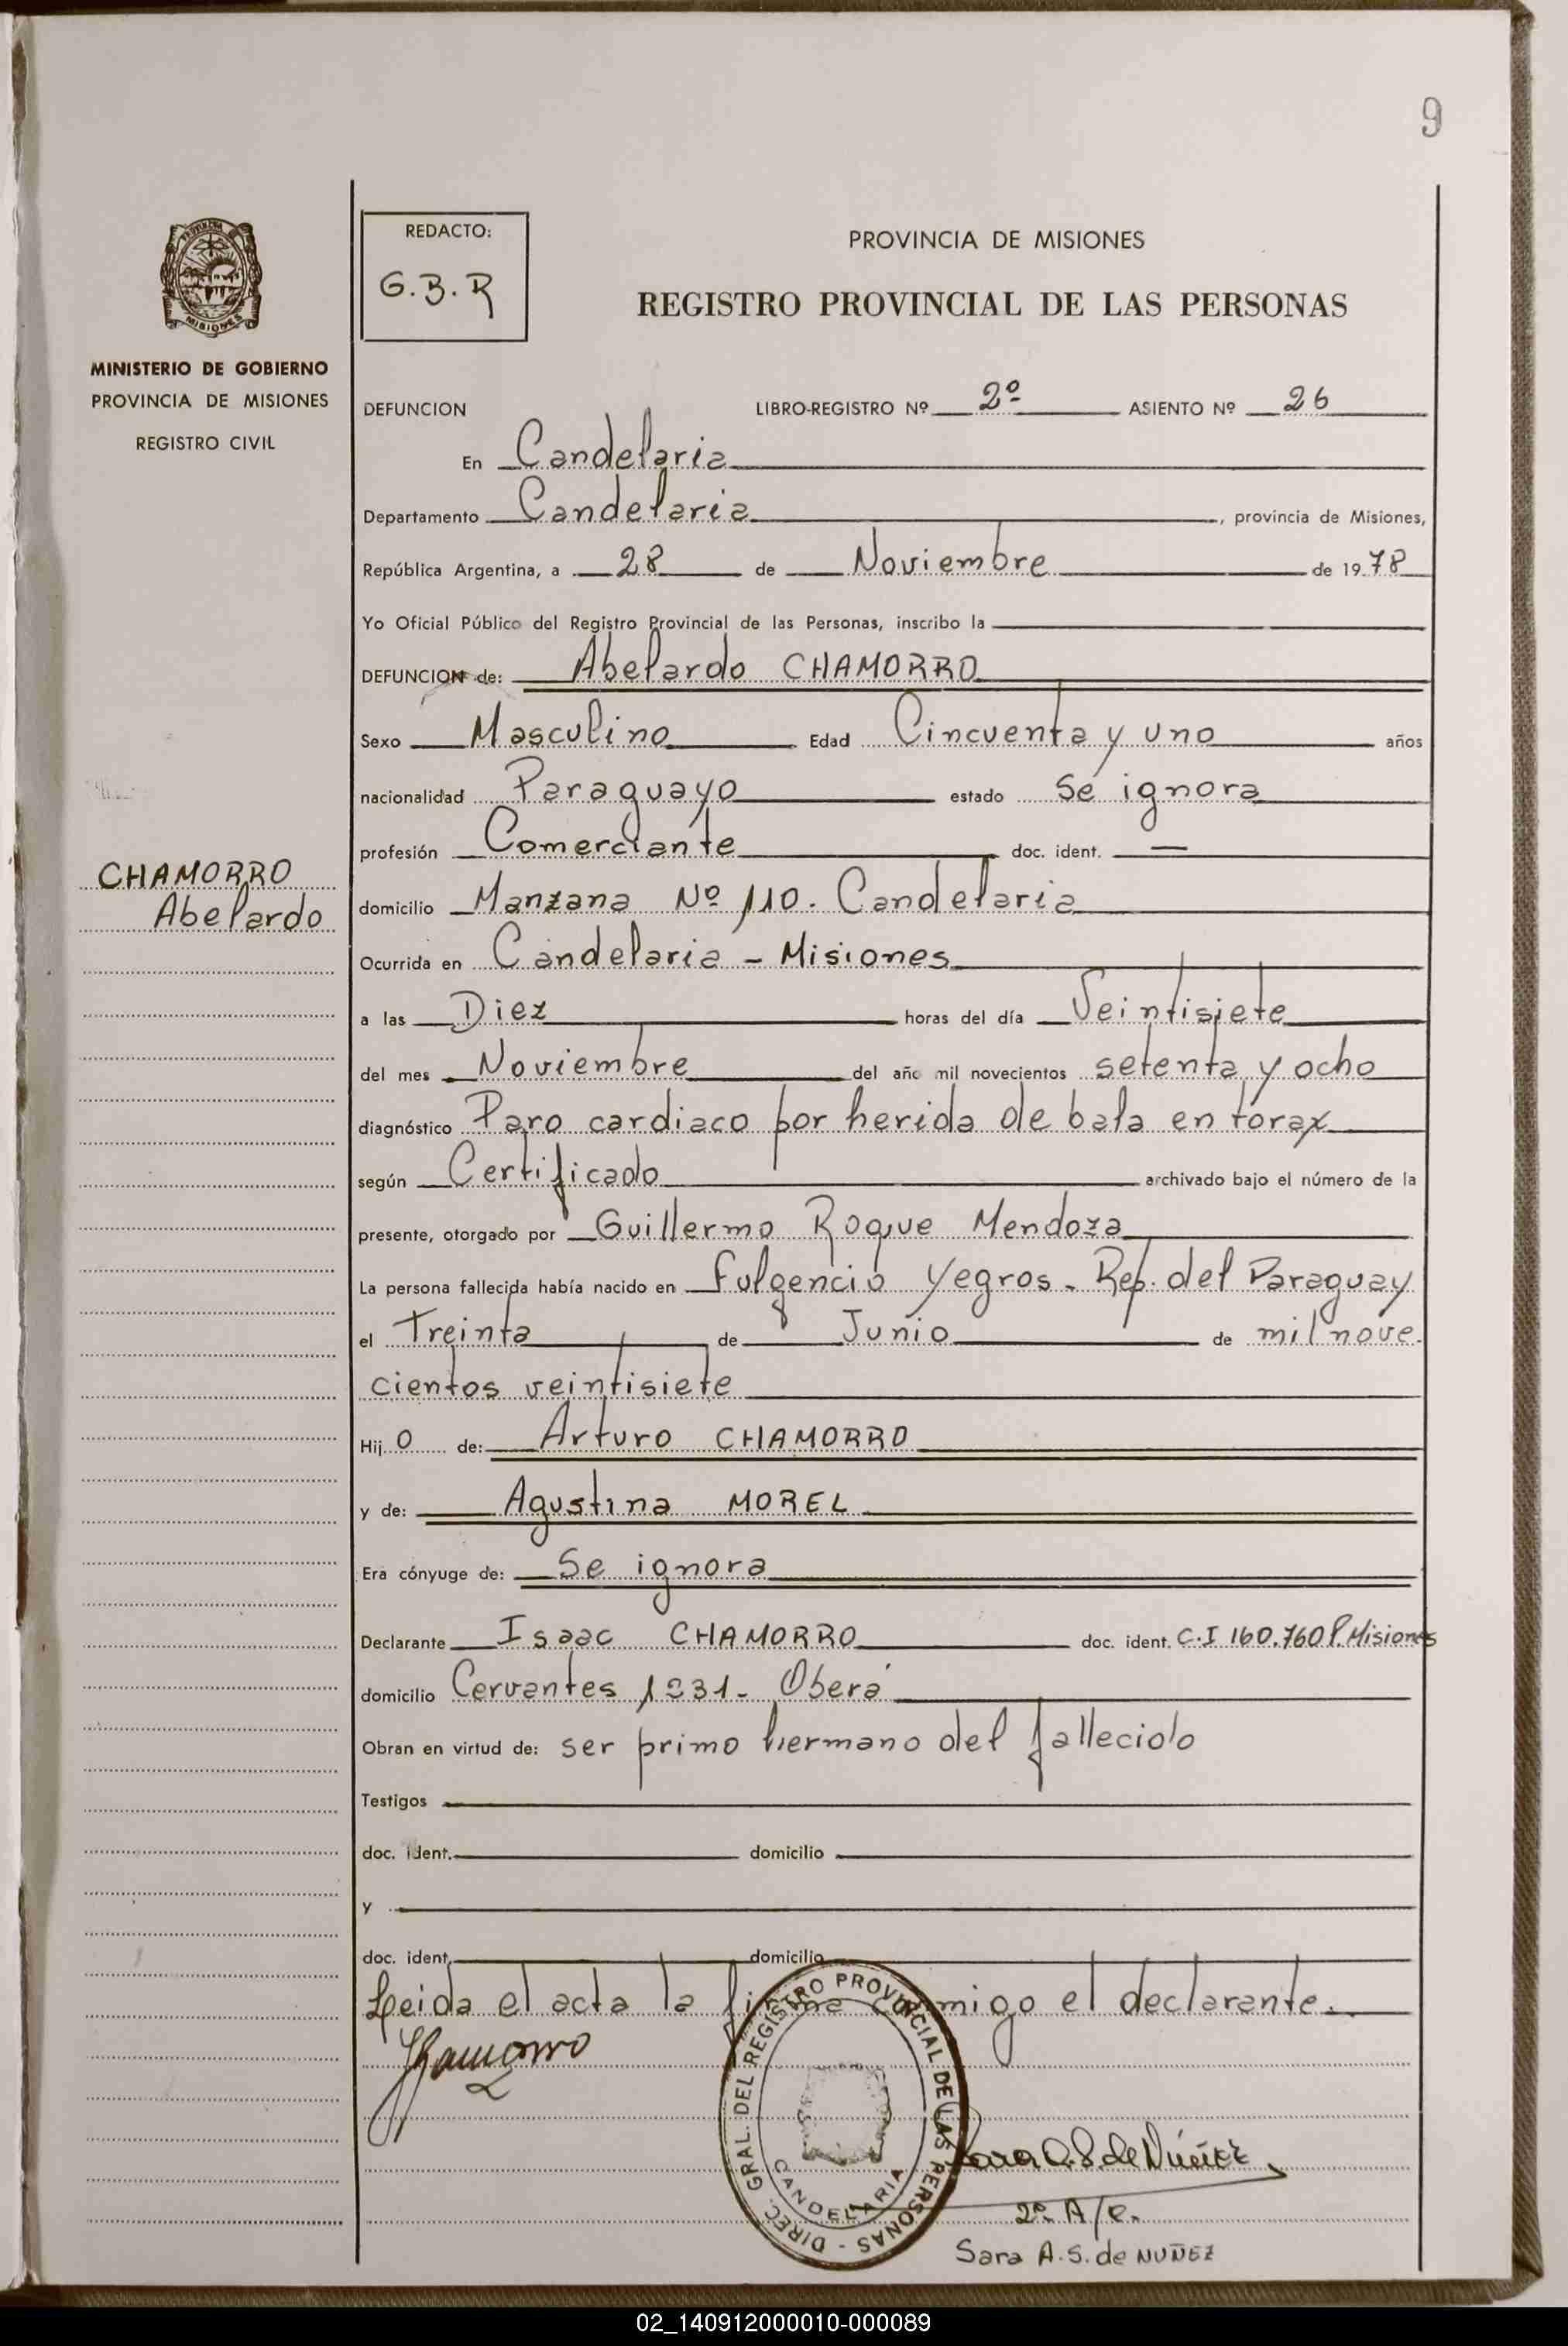 9
PROVINCIA
MISIONES
MINISTERIO DE GOBIERNO
PROVINCIA DE MISIONES
REGISTRO CIVIL
CHAMORRO
Abelardo
REDACTO:
G.B.R
PROVINCIA DE MISIONES
REGISTRO PROVINCIAL DE LAS PERSONAS
DEFUNCION LIBRO-REGISTRO Nº 2º ASIENTO Nº 26
En Candelaria
Departamento Candelaria, provincia de Misiones,
República Argentina, a 28 de Noviembre de 19 78
Yo Oficial Público del Registro Provincial de las Personas, inscribo la
DEFUNCION de: Abelardo CHAMORRO
Sexo Masculino Edad Cincuenta y uno años
nacionalidad Paraguayo estado Se ignora
profesión Comerciante doc. ident. —
domicilio Manzana Nº 110. Candelaria
Ocurrida en Candelaria - Misiones
a las Diez horas del día Veintisiete
del mes Noviembre del año mil novecientos setenta y ocho
diagnóstico Paro cardiaco por herida de bala en tórax
según Certificado archivado bajo el número de la
presente, otorgado por Guillermo Roque Mendoza
La persona fallecida había nacido en Fulgencio Yegros - Rep. del Paraguay
el Treinta de Junio de mil nove.
cientos veintisiete
Hij o de: Arturo CHAMORRO
y de: Agustina MOREL
Era cónyuge de: Se ignora
Declarante Isaac CHAMORRO doc. ident. C.I 160.760 P. Misiones
domicilio Cervantes 1231- Oberá
Obran en virtud de: ser primo hermano del fallecido
Testigos
doc. ident. domicilio
y
doc. ident. domicilio
Leida el acta la firma conmigo el declarante.
DIREC. GRAL. DEL REGISTRO PROVINCIAL DE LAS PERSONAS -
CANDELARIA
Sara A.S. de Núñez
Sara A. S. de NUÑEZ
02_140912000010-000089